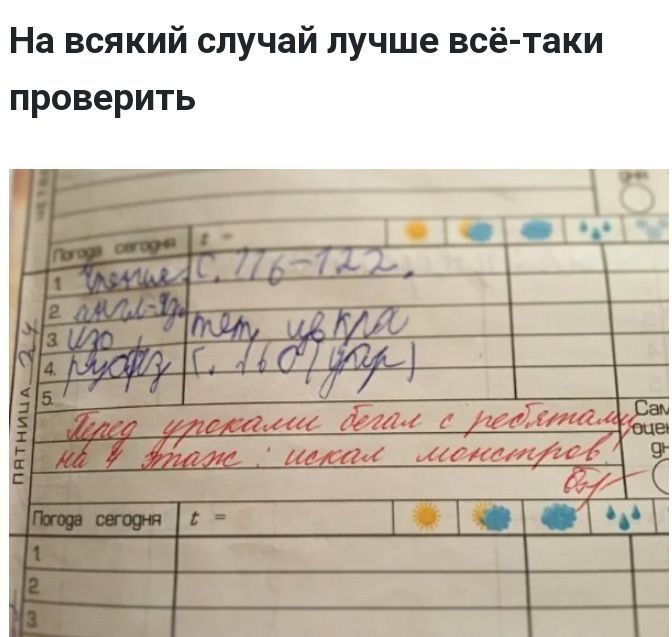 На всякий случай лучше всё-таки
проверить
Погода сегодня t =
1 чтение с. 116-122.
2 англ-яз.
3 изо тет цв кра
4. русяз с. 160 (упр)
5.
ПЯТНИЦА 24
Перед уроками бегал с ребятами
на 4 этаж: искал монстров!
Сам
оце
Погода сегодня t =
1
2
3